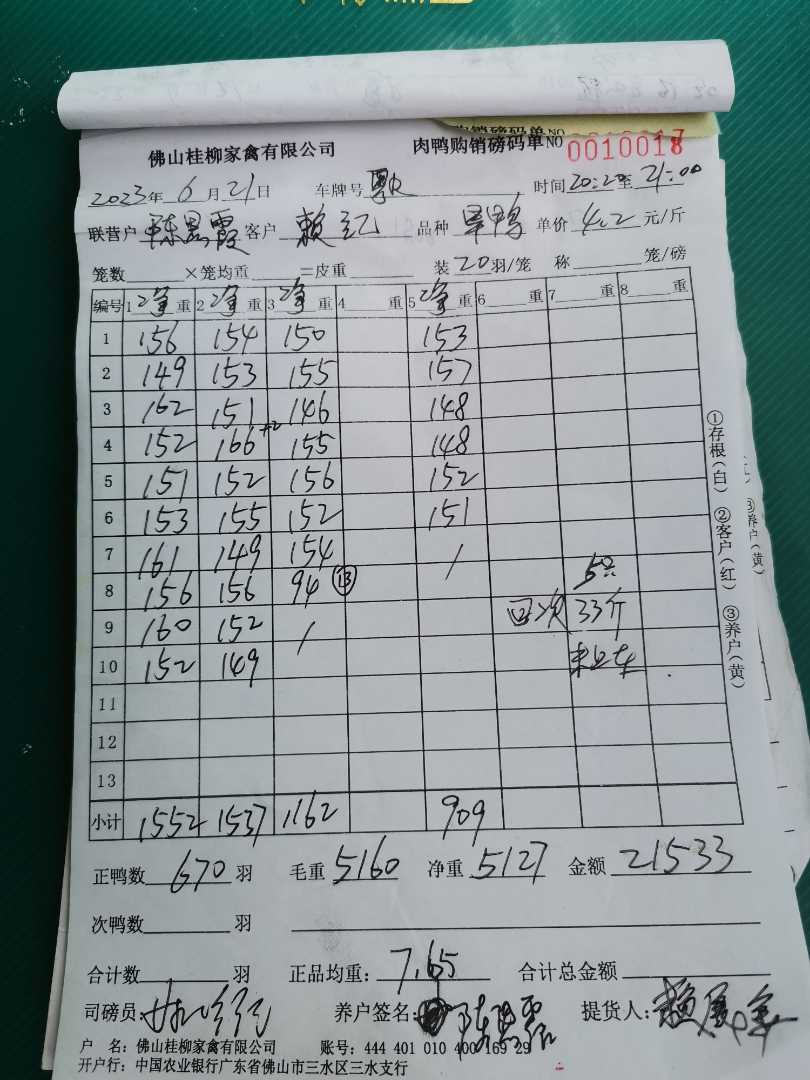 佛山桂柳家禽有限公司 肉鸭购销磅码单NO 0010018
2023年 6 月 21 日 车牌号 粤 时间 20:20 至 21:00
联营户 陈 霞 客户 赖记 品种 单价 4.2 元/斤
笼数 ×笼均重 =皮重 装 20 羽/笼 称 笼/磅
编号 1 净重 2 净重 3 净重 4 重 5 净重 6 重 7 重 8 重
1 156 154 150 153
2 149 153 155 157
3 162 151 146 148
4 152 166 +2 155 148
5 151 152 156 152
6 153 155 152 151
7 161 149 154 /
8 156 156 94 ⑬ 5只
9 160 152 / 回次 33斤
10 152 149
11
12
13
小计 1552 1537 1162 909
正鸭数 670 羽 毛重 5160 净重 5127 金额 21533
次鸭数 羽
合计数 羽 正品均重: 7.65 合计总金额
司磅员: 养户签名: 提货人: 赖
户 名: 佛山桂柳家禽有限公司 账号: 444 401 010 400 169 29
开户行: 中国农业银行广东省佛山市三水区三水支行
①存根(白) ②客户(红) ③养户(黄)
③养户(黄)